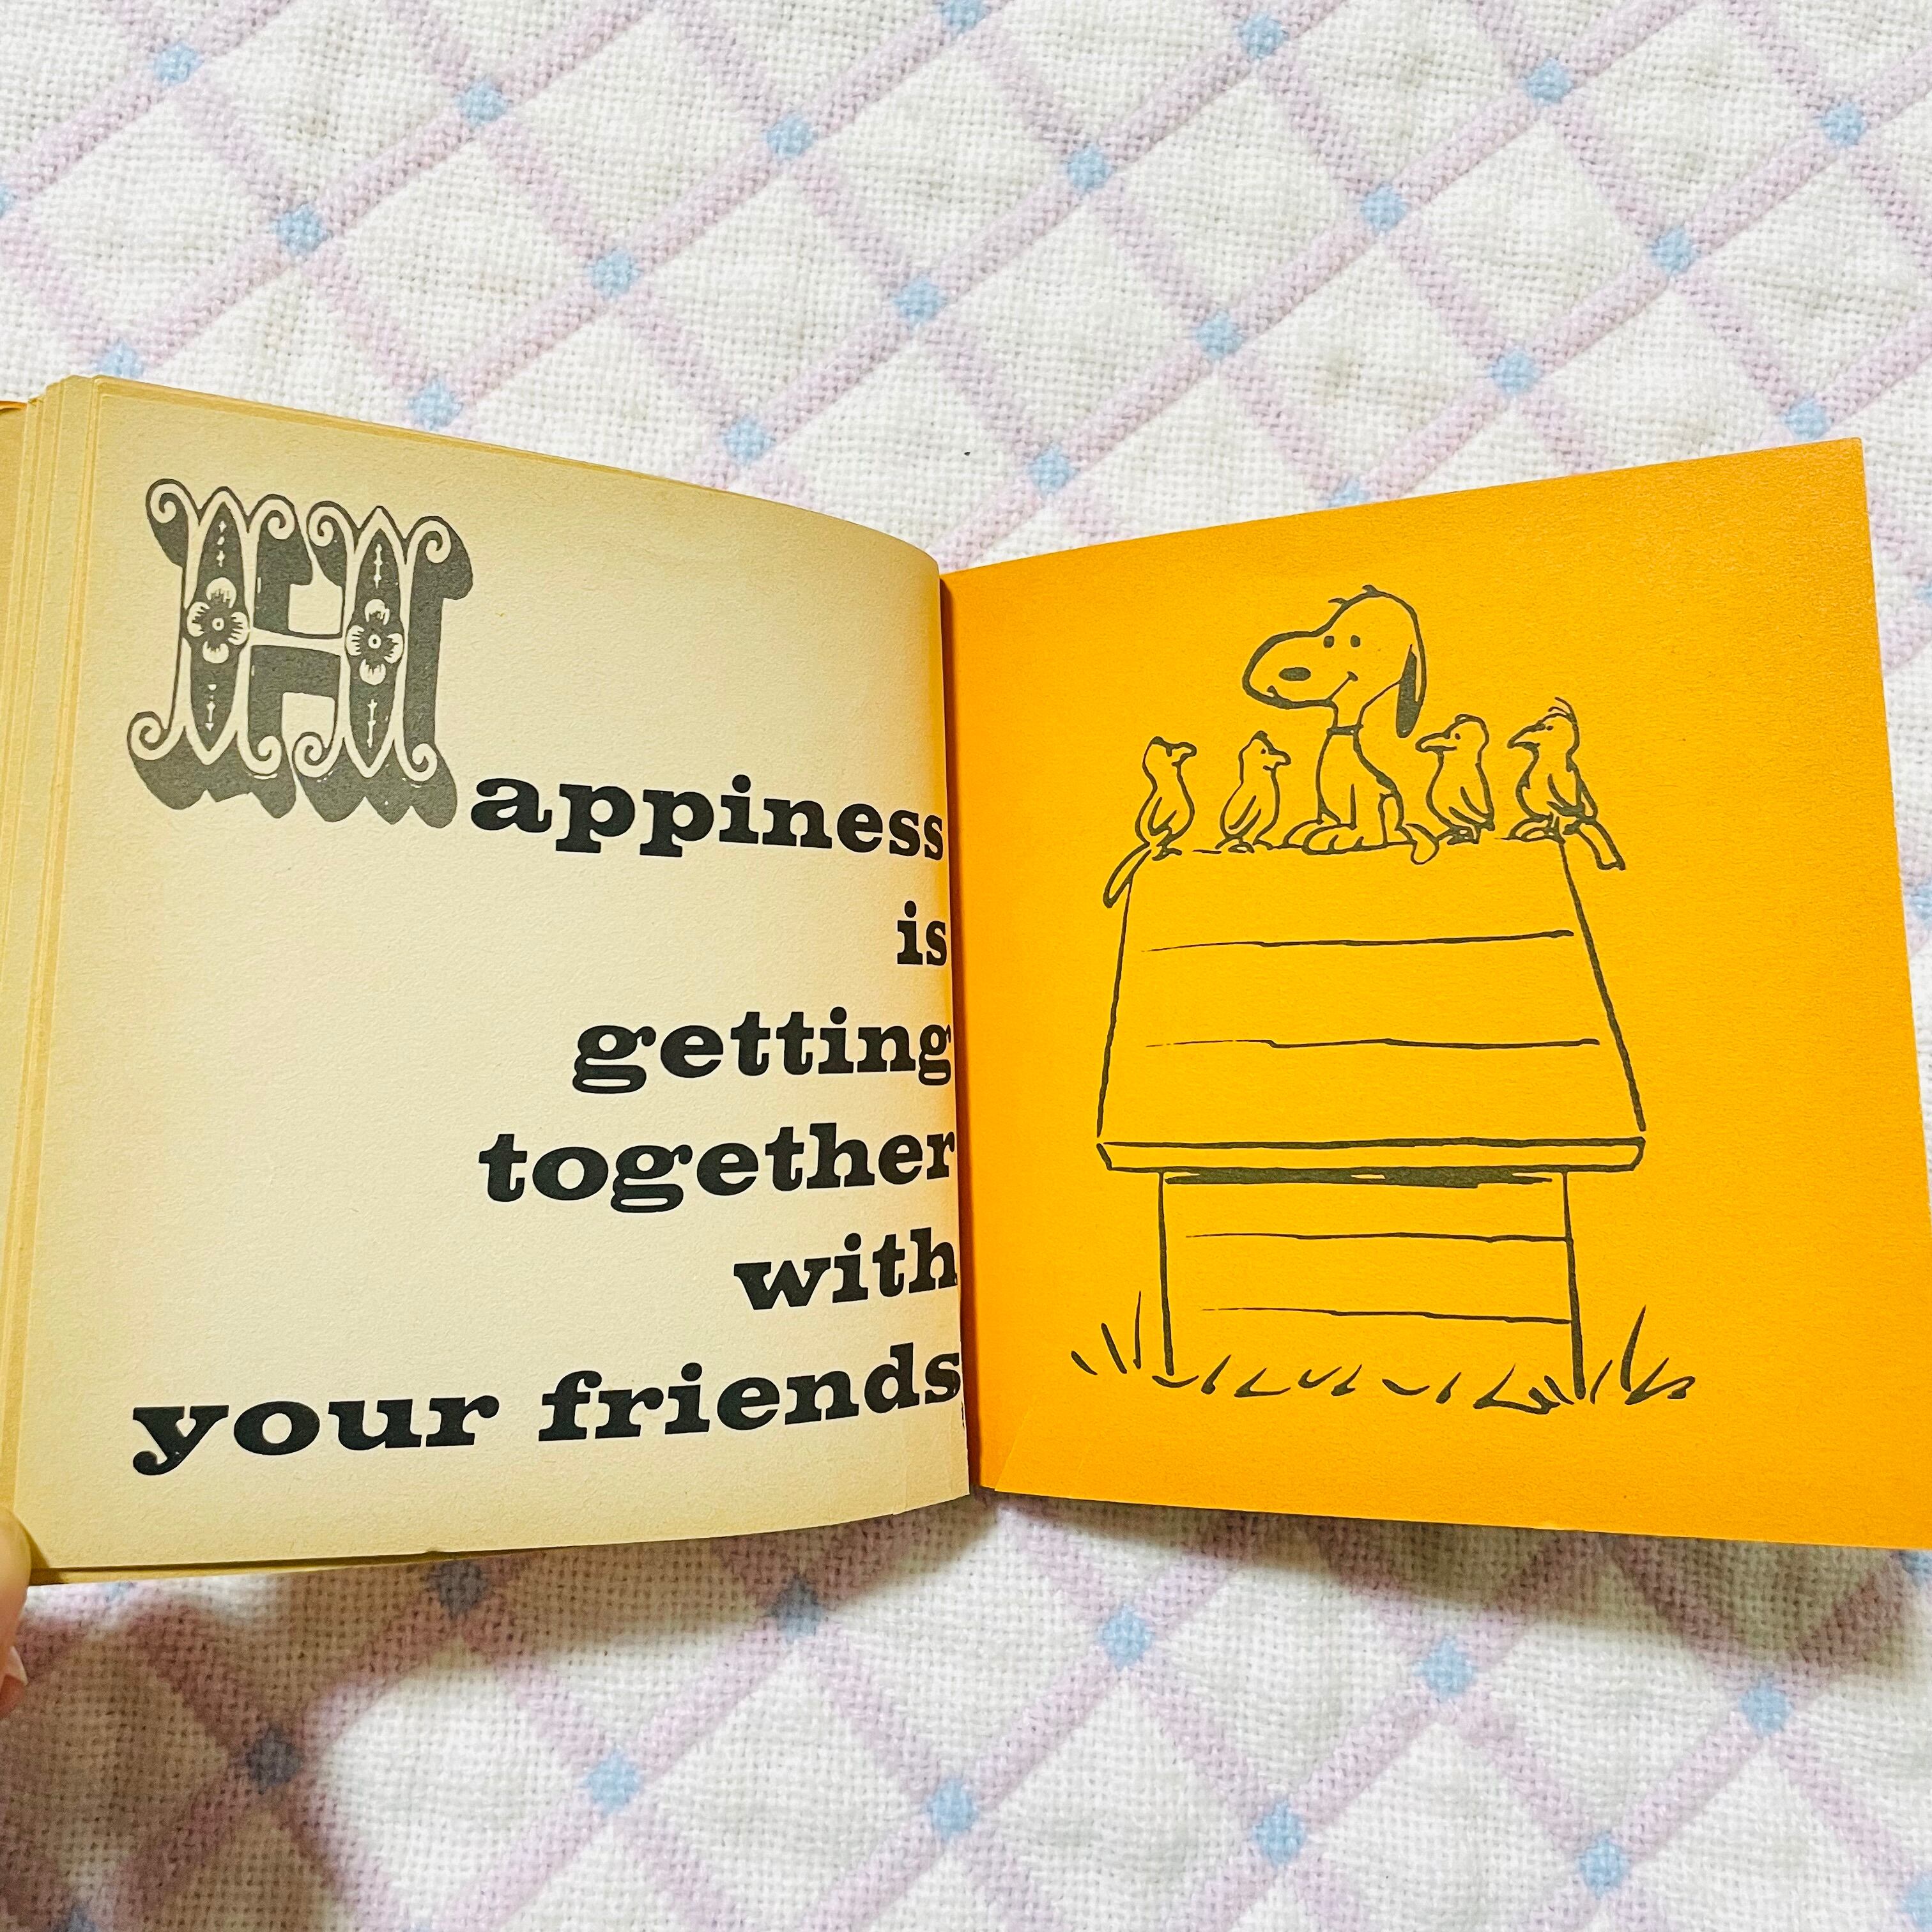 Happiness
is
getting
together
with
your friends